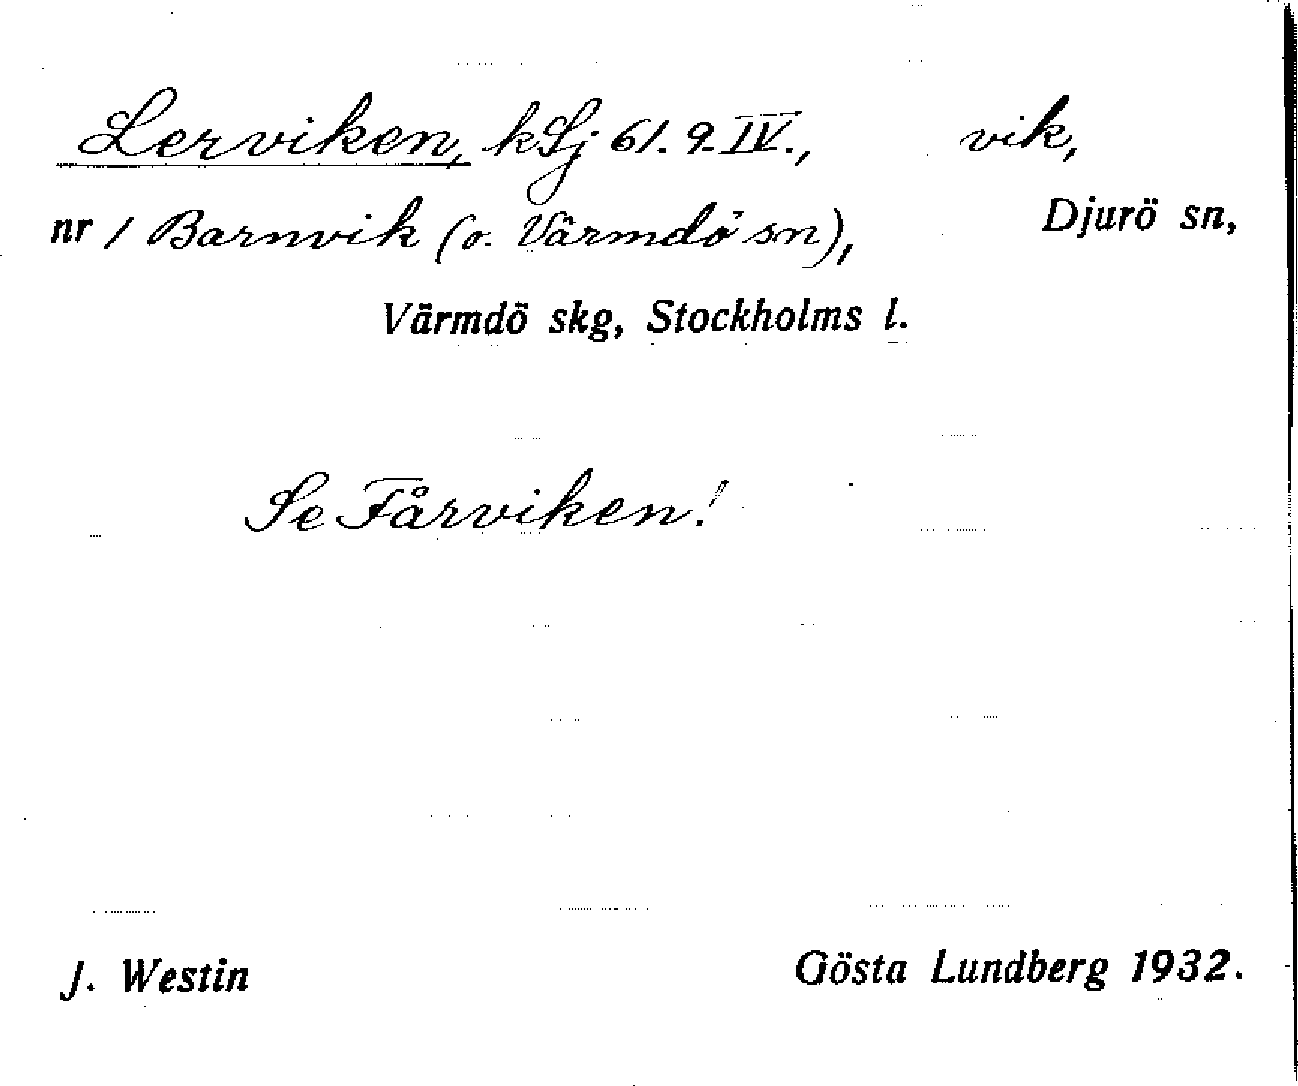 Lerviken, kSj 61. 9. IV., vik,
nr 1 Barnvik (o. Värmdö sn), Djurö sn,
Värmdö skg, Stockholms l.
Se Fårviken!
J. Westin Gösta Lundberg 1932.